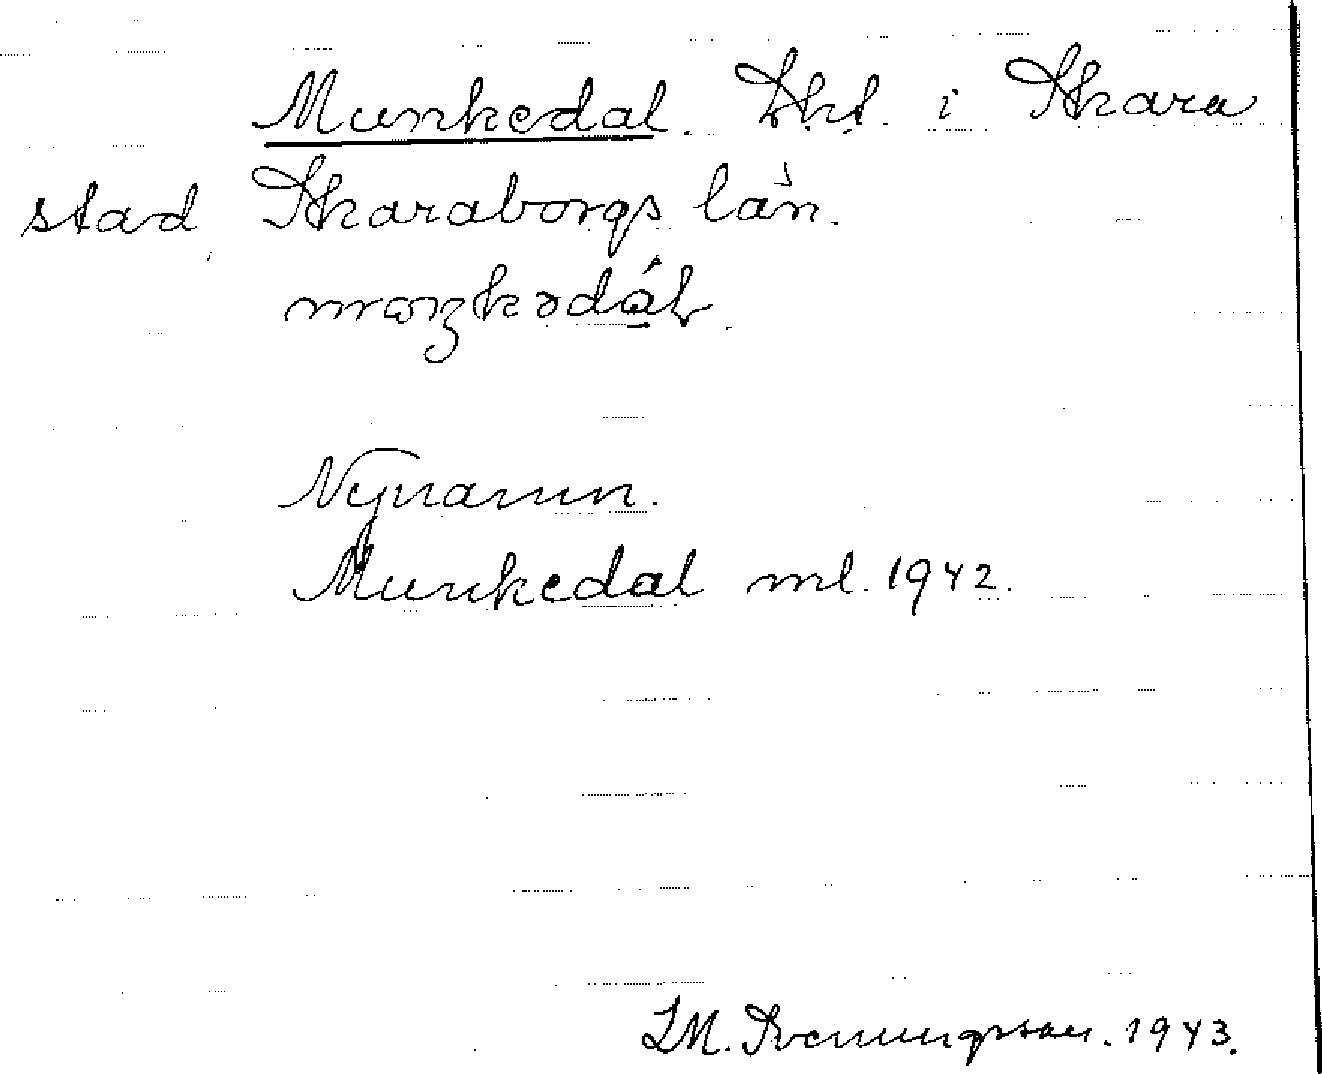 Munkedal. Lht. i Skara
stad, Skaraborgs län.
Nynamn.
Munkedal ml. 1942.
J.M. Svenungsson. 1943.